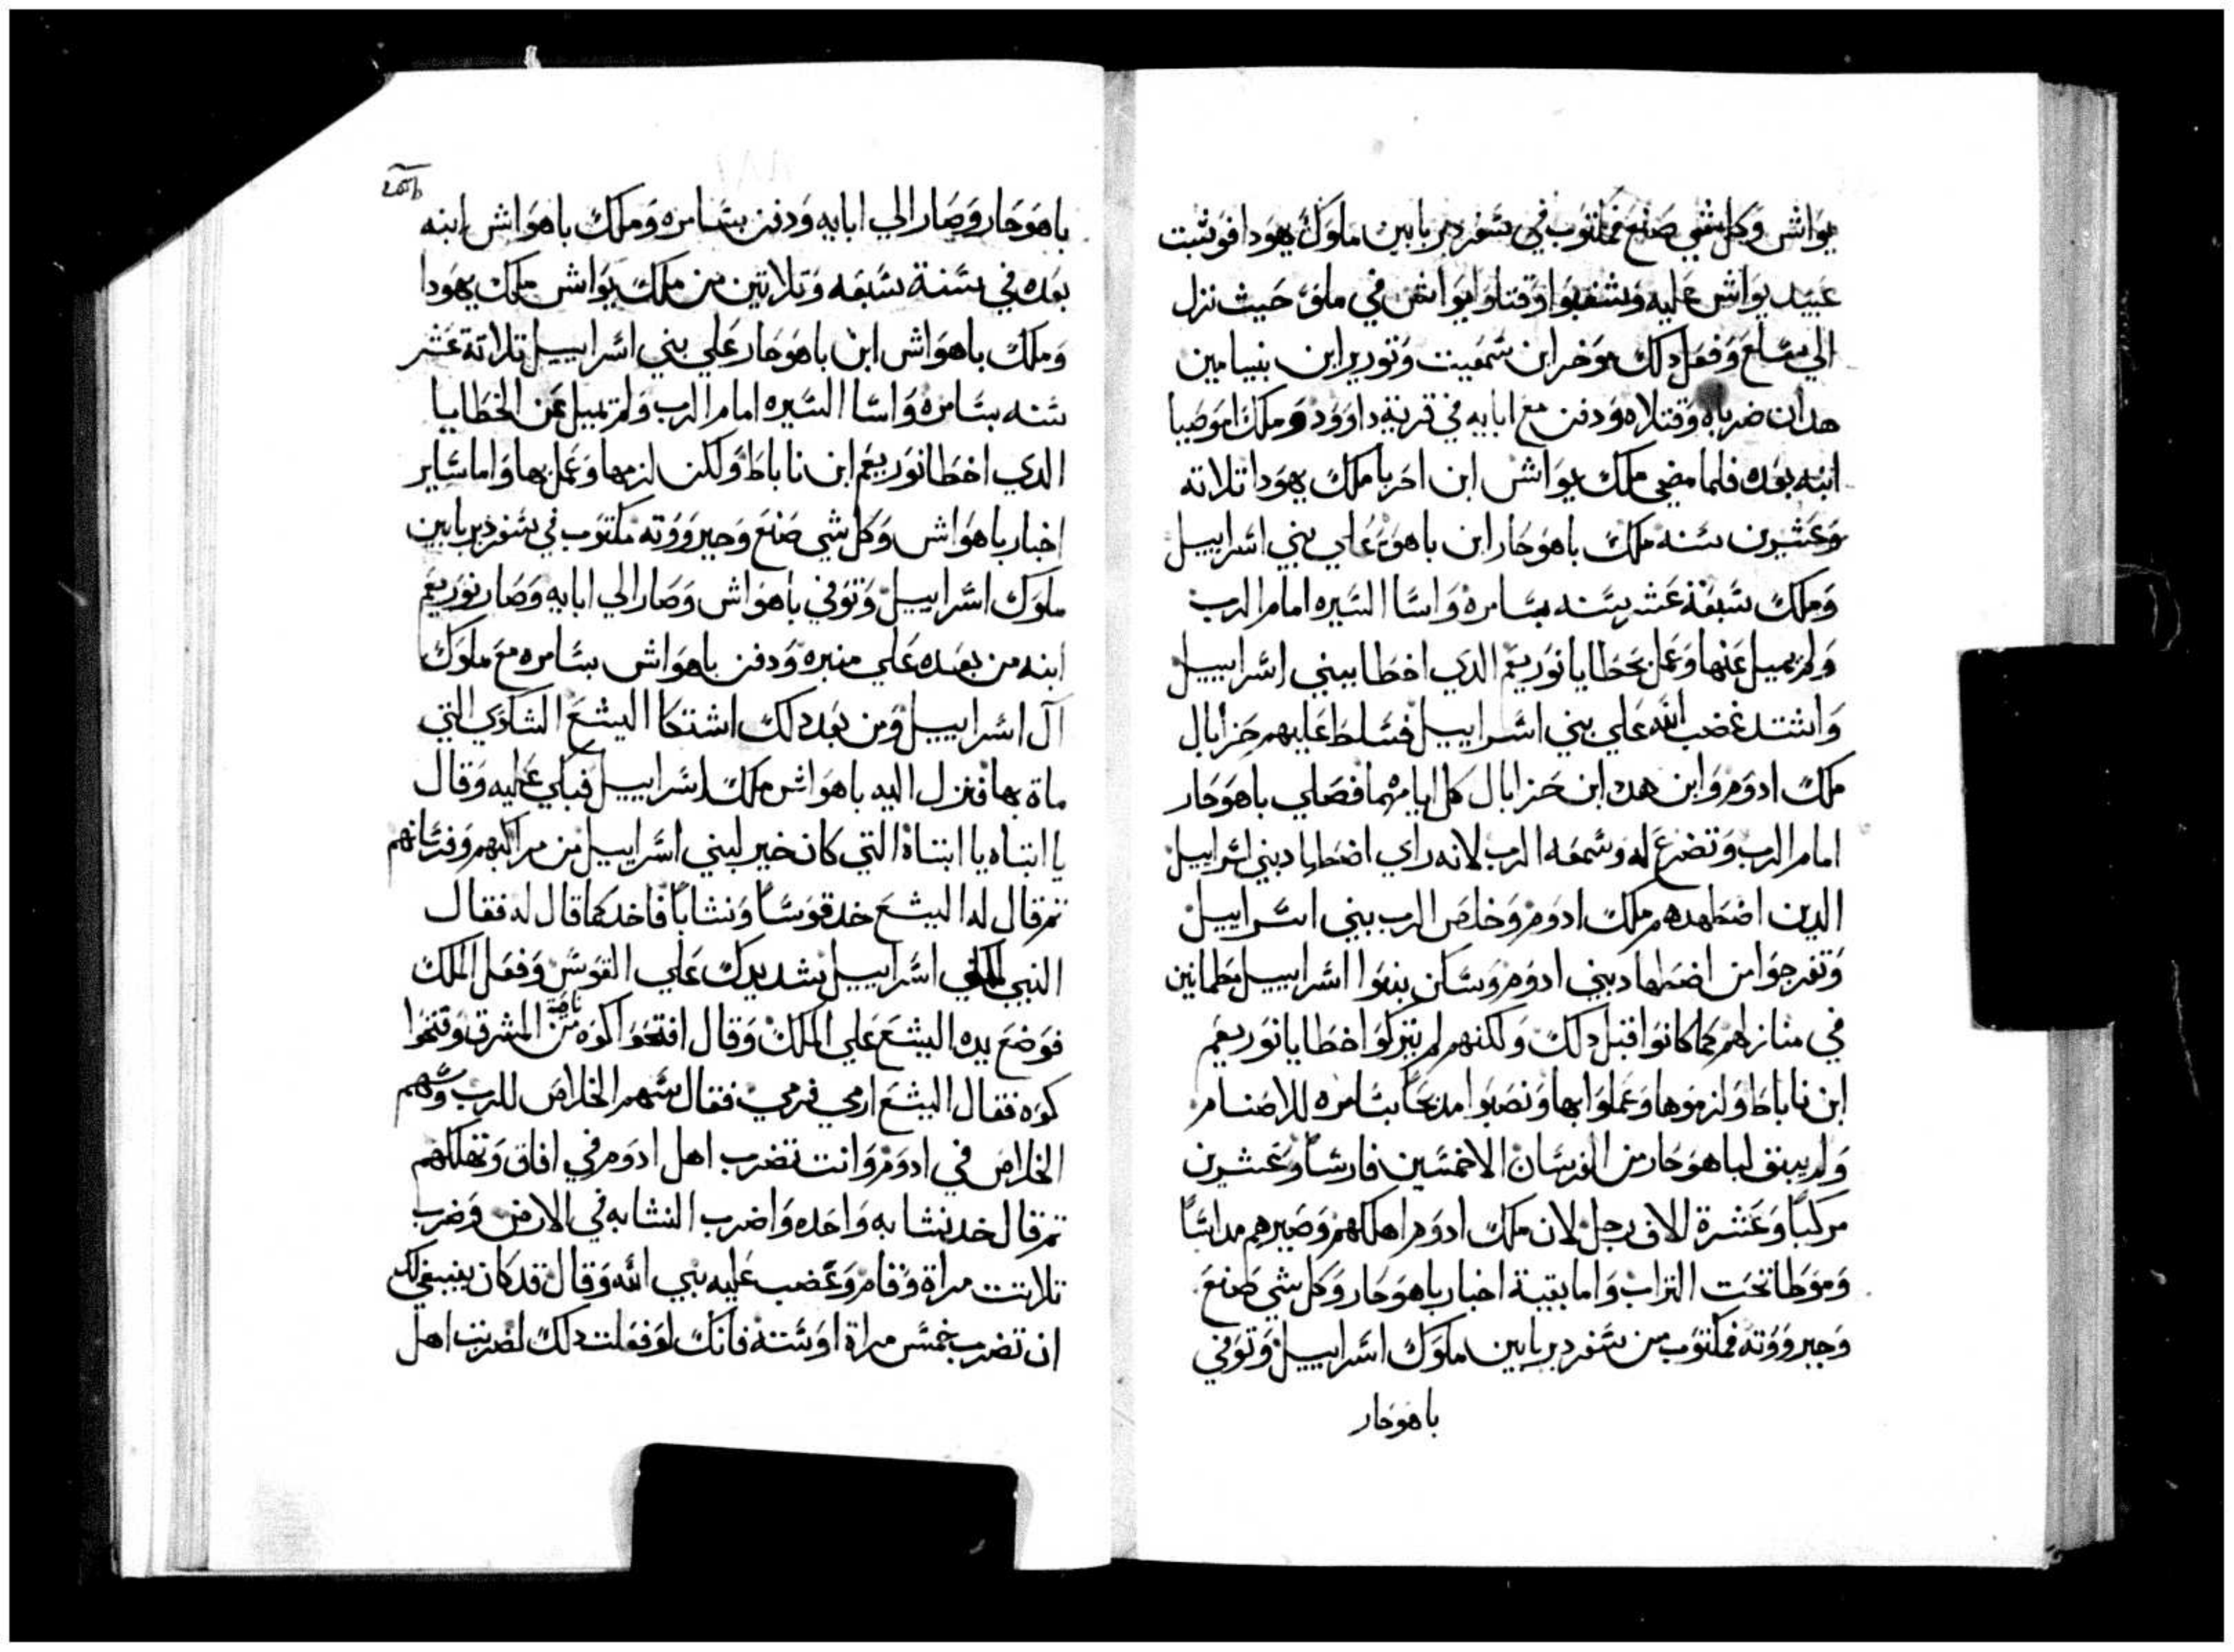 يواش وكل شي صنع فمكتوب في سفر دبريامين ملوك يهودا فوثبت
عبيد يواش عليه وشغبوا وقتلوا يواش في ملوّ حيث نزل
الي سلع وفعل دلك موخر ابن سمعيت وتورير ابن بنيامين
هدان ضرباه وقتلاه ودفن مع ابايه في قرية داوود وملك اموصيا
ابنه بعده فلما مضي ملك يواش ابن احزيا ملك يهودا تلاته
وعشرين سنه ملك ياهوحار ابن ياهو علي بني اسراييل
وملك سبعة عشر سنه بسامره واسا السيره امام الرب
ولم يميل عنها وعمل بخطايا نوريعم الدي اخطا ببني اسراييل
واشتد غضب الله علي بني اسراييل فسلط عليهم حزابال
ملك ادوم وابن هدد ابن حزابال كل ايامهما فصلي ياهوحار
امام الرب وتضرع له وسمعه الرب لانه راي اضطهاد بني اسراييل
الدين اضطهدهم ملك ادوم وخلص الرب بني اسراييل
وتفرجوا من اضطهاد بني ادوم وسكن بنوا اسراييل مطمانين
في منازلهم كما كانوا قبل دلك ولكنهم لم يتركوا خطايا نوريعم
ابن ناباط ولزموها وعملوا بها ونصبوا مدبحاً بسامره للاصنام
ولم يبق لياهوحار من الفرسان الا خمسين فارساً وعشرين
مركباً وعشرة الاف رجل لان ملك ادوم اهلكهم وصيرهم مداساً
وموطا تحت التراب واما بقية اخبار ياهوحار وكل شي صنع
وجبرووته فمكتوب من سفر دبريامين ملوك اسراييل وتوفي
ياهوحار
ياهوحار وصار الي ابايه ودفن بسامره وملك ياهواش ابنه
بعده في سنة سبعه وتلاتين من ملك يواش ملك يهودا
وملك ياهواش ابن ياهوحار علي بني اسراييل تلاتة عشر
سنه بسامره واسا السيره امام الرب ولم يميل عن الخطايا
الدي اخطا نوريعم ابن ناباط ولكن لزمها وعمل بها واما ساير
اخبار ياهواش وكل شي صنع وجبرووته مكتوب في سفر دبريامين
ملوك اسراييل وتوفي ياهواش وصار الي ابايه وصار نوريعم
ابنه من بعده علي منبره ودفن ياهواش بسامره مع ملوك
آل اسراييل ومن بعد دلك اشتكا اليشع الشكوي التي
ماة بها فنزل اليه ياهواش ملك اسراييل فبكي عليه وقال
يا ابتاه يا ابتاة التي كان خير لبني اسراييل من مراكبهم وفرسانهم
تم قال له اليشع خد قوساً ونشاباً فاخد كما قال له فقال
النبي اسراييل شد يدك علي القوس وفعل الملك
فوضع يده اليشع علي الملك وقال افتحوا كوه من ناحية المشرق وفتحوا
كوه فقال اليشع ارمي فرمي فقال سهم الخلاص للرب وسهم
الخلاص في ادوم وانت تضرب اهل ادوم في افاق وتهلكهم
تم قال خد نشابه واحده واضرب النشابه في الارض وضرب
تلاتت مراة وقام وغضب عليه نبي الله وقال قد كان ينبغي لك
ان تضرب خمس مراة او ستة فانك لو فعلت دلك لضربت اهل